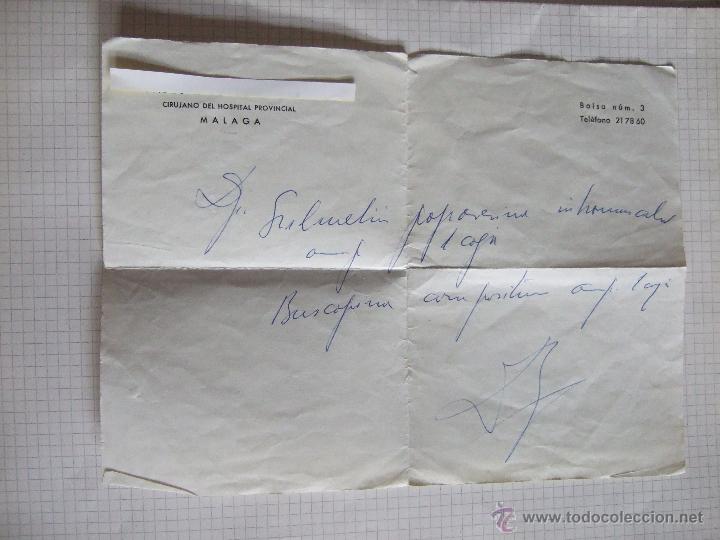 CIRUJANO DEL HOSPITAL PROVINCIAL
MALAGA
Bolsa núm. 3
Teléfono 21 78 60
Dp. papaverina intramuscular
amp 1 caja
Buscapina compositum amp. 1 caja
www.todocoleccion.net